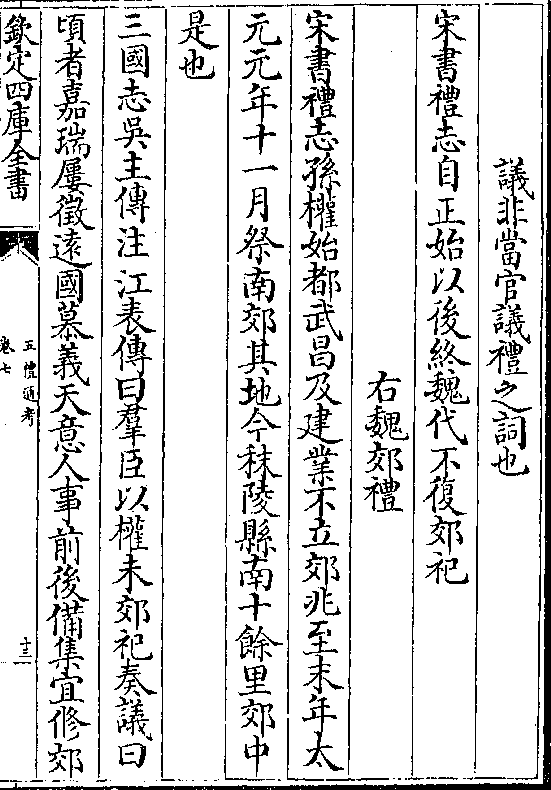 議非當官議禮之詞也
宋書禮志自正始以後終魏代不復郊祀
右魏郊禮
宋書禮志孫權始都武昌及建業不立郊兆至末年太
元元年十一月祭南郊其地今秣陵縣南十餘里郊中
是也
三國志吳主傳注江表傳曰羣臣以權未郊祀奏議曰
頃者嘉瑞屢徵遠國慕義天意人事前後備集宜修郊
欽定四庫全書
五禮通考
卷七
十三